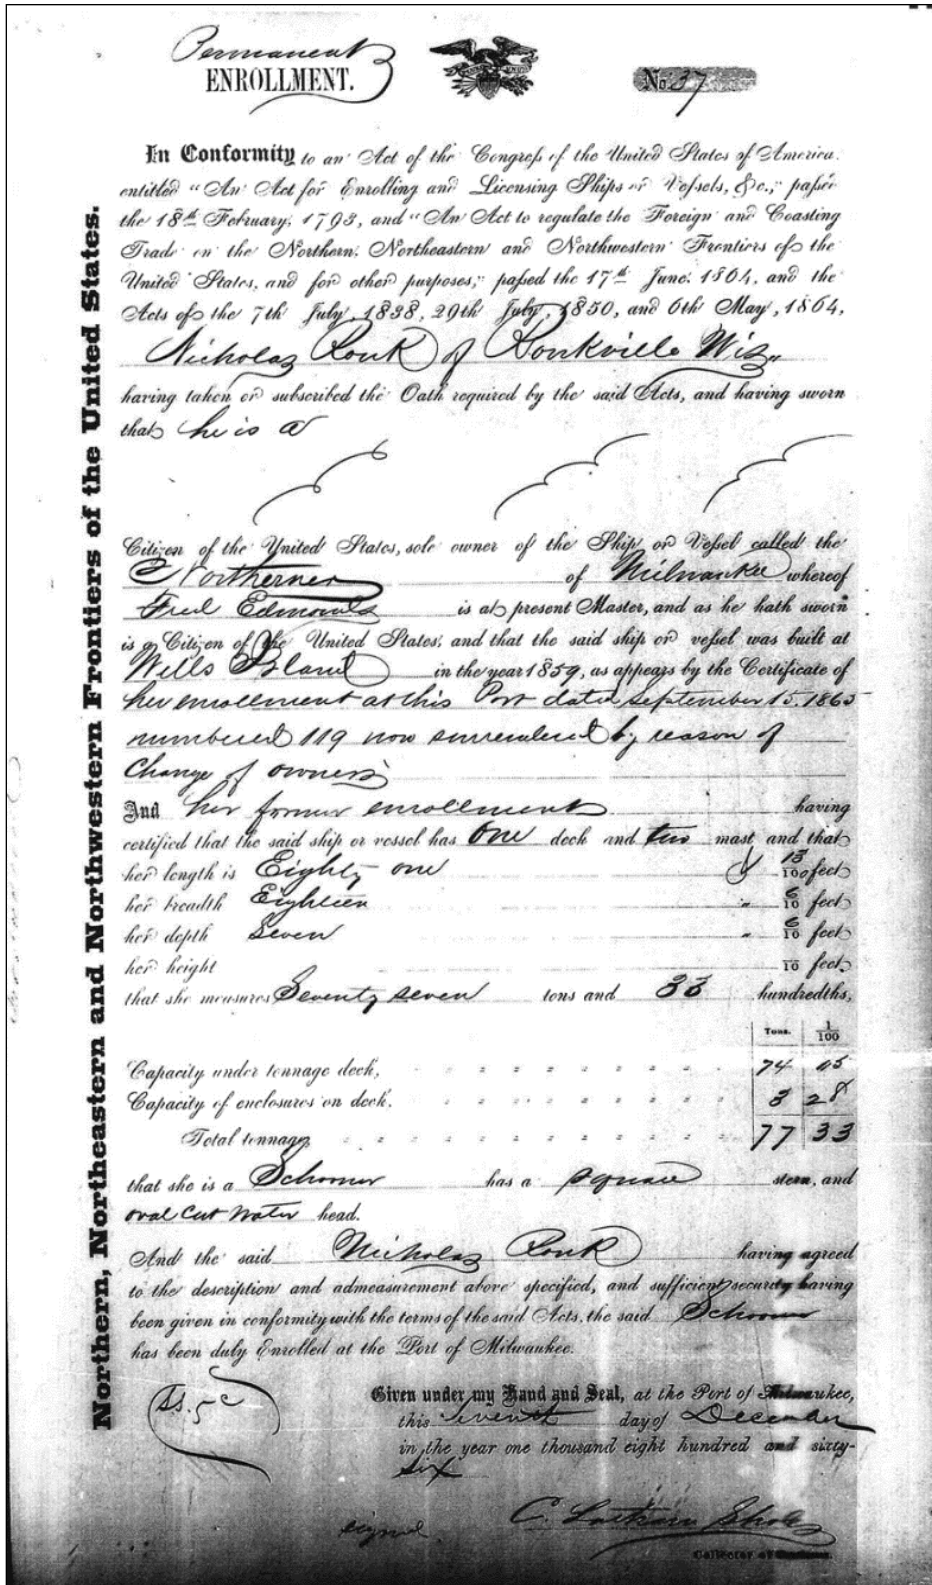 Permanent
ENROLLMENT.
No 37
Northern, Northeastern and Northwestern Frontiers of the United States.
In Conformity to an Act of the Congress of the United States of America
entitled "An Act for Enrolling and Licensing Ships or Vessels, &c.," passed
the 18th February, 1793, and "An Act to regulate the Foreign and Coasting
Trade on the Northern, Northeastern and Northwestern Frontiers of the
United States, and for other purposes," passed the 17th June, 1864, and the
Acts of the 7th July, 1838, 29th July, 1850, and 6th May, 1864,
Nicholas Ronk of Ronkville Wis.
having taken or subscribed the Oath required by the said Acts, and having sworn
that he is a
Citizen of the United States, sole owner of the Ship or Vessel called the
Northerner of Milwaukee whereof
Fred Edmonds is at present Master, and as he hath sworn
is a Citizen of the United States, and that the said ship or vessel was built at
Wells Island in the year 1859, as appears by the Certificate of
her enrollment at this Port dated September 15. 1865
numbered 119 now surrendered by reason of
Change of owners
And her former enrollment having
certified that the said ship or vessel has one deck and two mast and that
her length is Eighty one 13/100 feet
her breadth Eighteen " 6/10 feet
her depth Seven " 6/10 feet
her height /10 feet.
that she measures Seventy seven tons and 33 hundredths,
Tons. 1/100
Capacity under tonnage deck, 74 05
Capacity of enclosures on deck. 3 28
Total tonnage, 77 33
that she is a Schooner has a square stern, and
oval Cut Water head.
And the said Nicholas Ronk having agreed
to the description and admeasurement above specified, and sufficient security having
been given in conformity with the terms of the said Acts, the said Schooner
has been duly Enrolled at the Port of Milwaukee.
Given under my Hand and Seal, at the Port of Milwaukee,
this Seventh day of December
in the year one thousand eight hundred and sixty-
six
signed C. Latham Sholes
Collector of Customs.